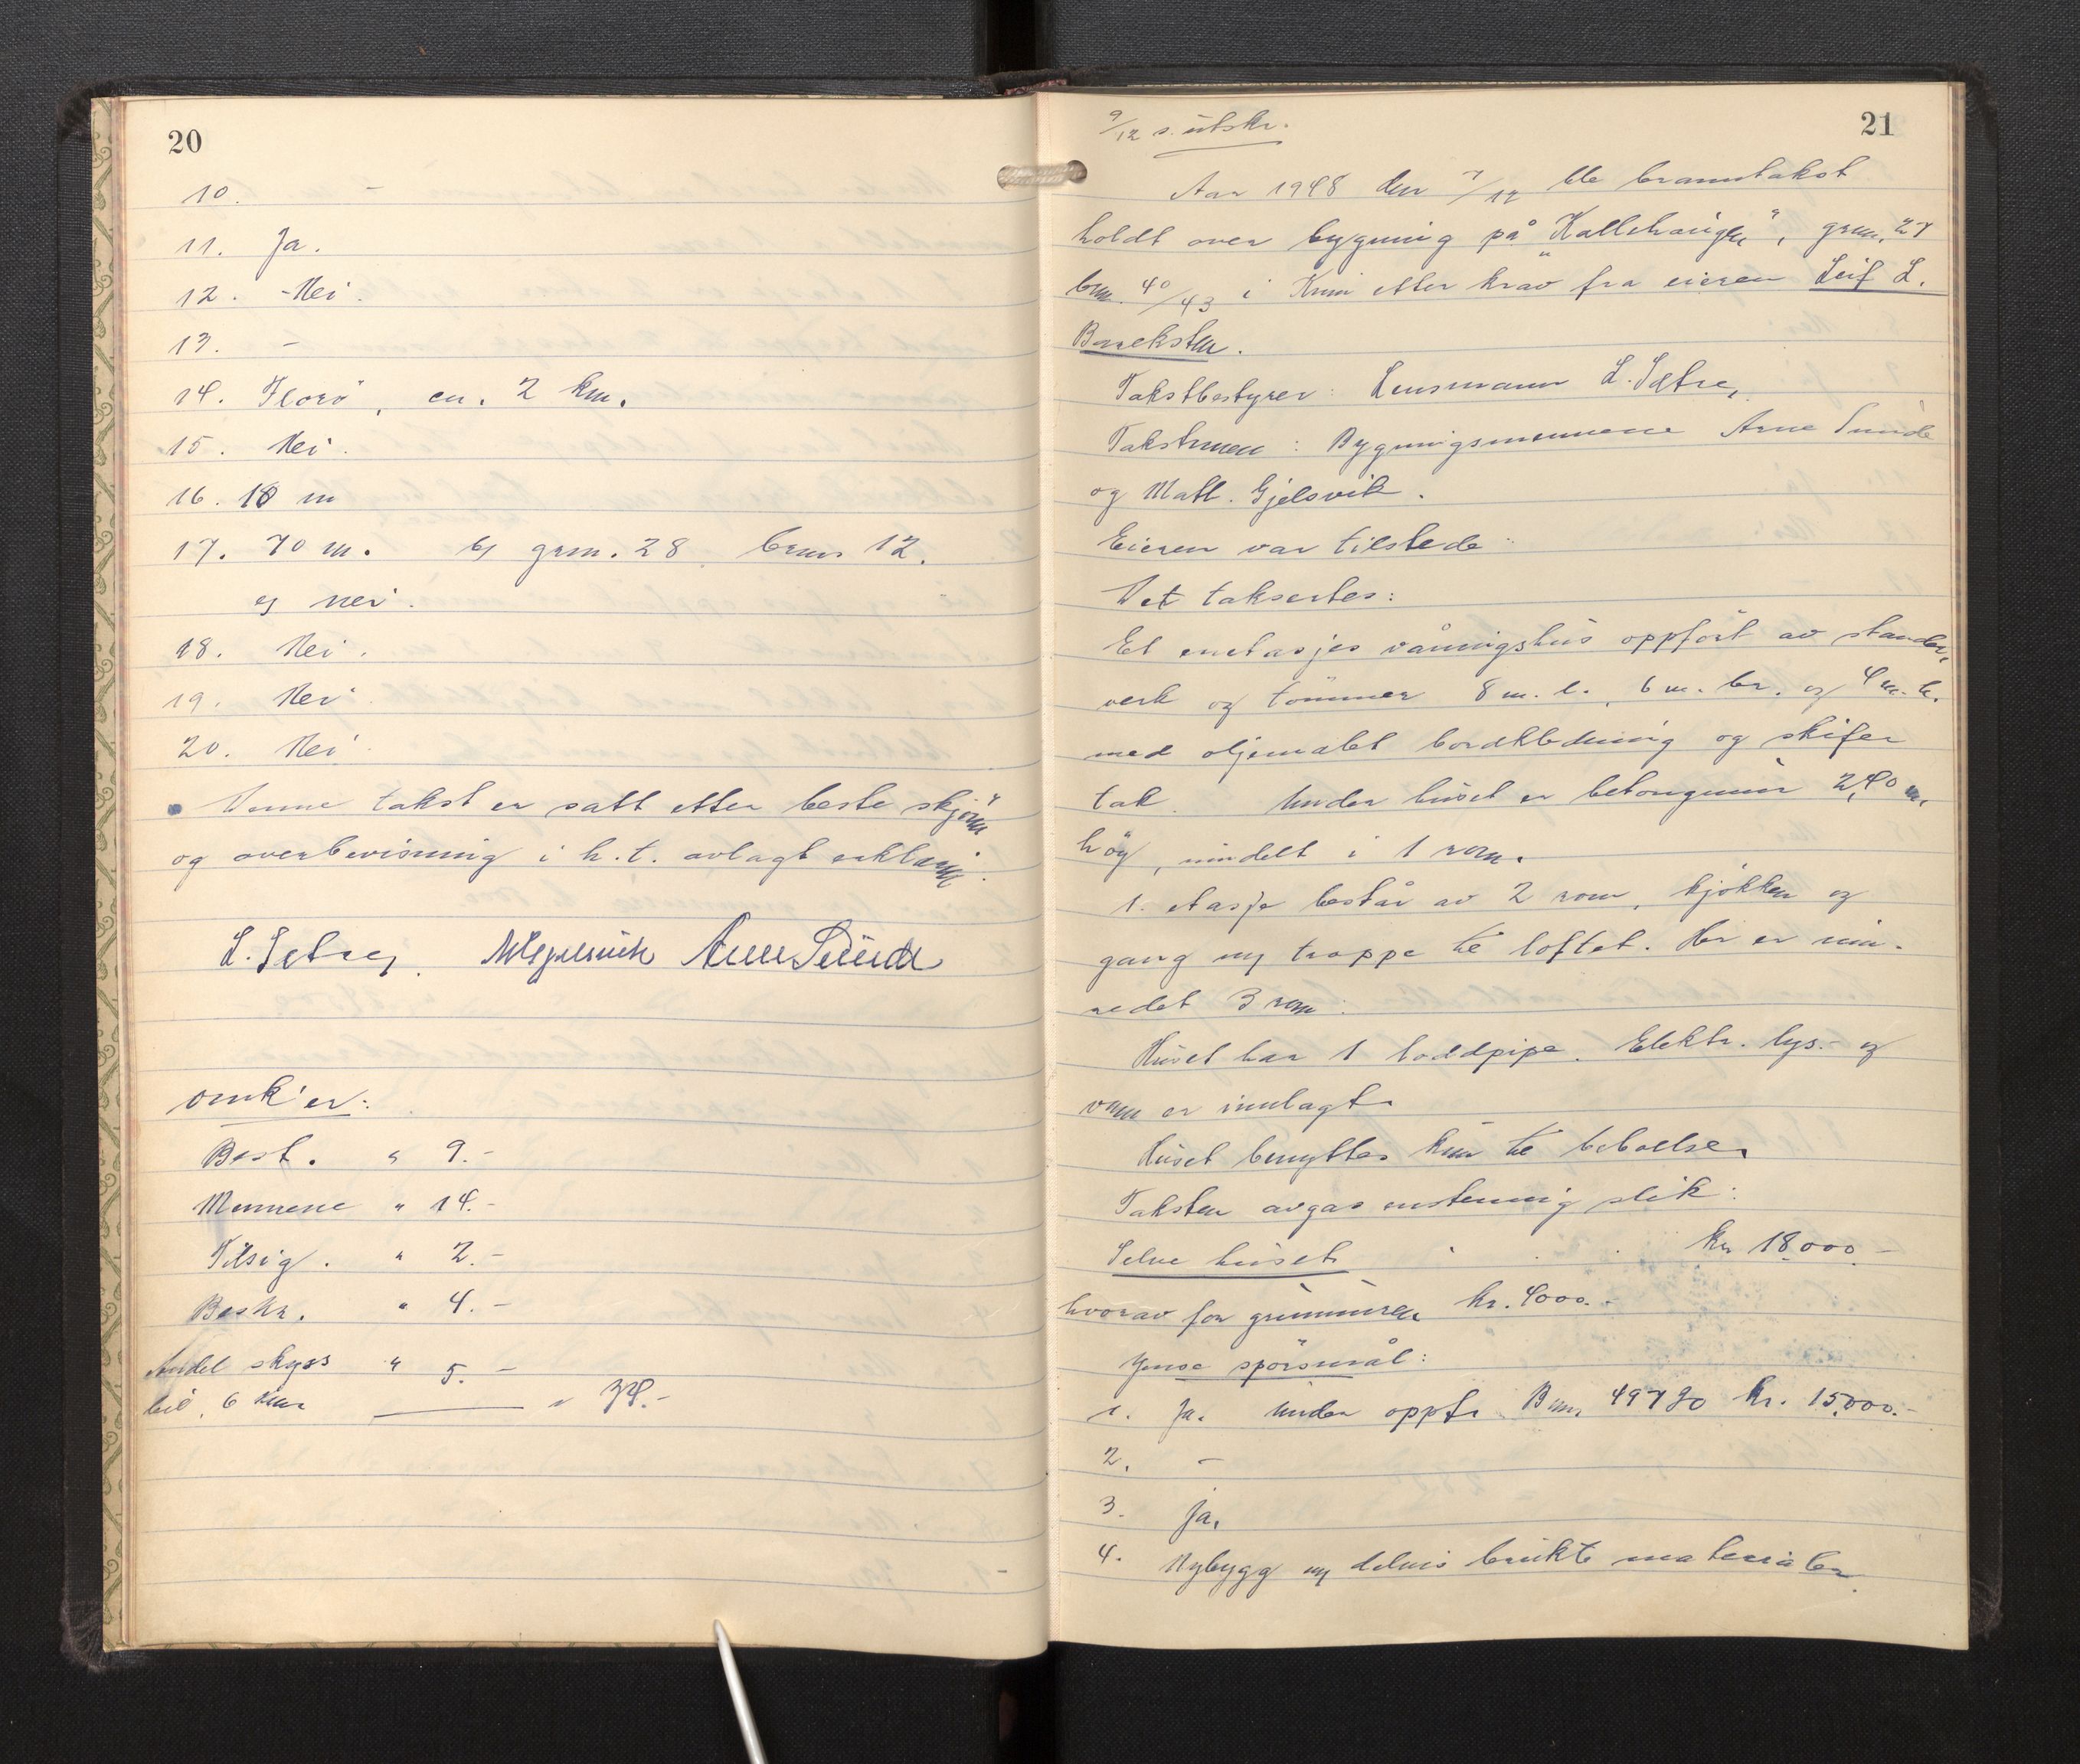 20
10. -
11. Ja.
12. - Nei.
13. -
14. Florö, ca. 2 km.
15. Nei.
16. 18 m
17. 70 m. b) grm. 28 brnr 12.
c) nei.
18. Nei.
19. Nei.
20. Nei.
Denne takst er satt etter beste skjönn
og overbevisning i h.t. avlagt erklæring.
L. Setre, MGjelsvik Arne Sunde
omk'er:
Best. " 9.-
Mennene " 14.-
Tilsig. " 2.-
Beskr. " 4.-
Andel skyss " 5.-
bil, 6 km " 34.-
21
9/12 s. utskr.
Aar 1948 den 7/12 ble branntakst
holdt over bygning på "Kallehaugen", grnr. 27
brnr. 40/43 i Kinn etter krav fra eieren Leif L.
Bareksten.
Takstbestyrer: Lensmann L. Setre,
Takstmenn: Bygningsmennene Arne Sunde
og Matt. Gjelsvik.
Eieren var tilstede.
Det taksertes:
Et enetasjes våningshus oppfört av stender-
verk og tömmer 8 m. l., 6 m. br. og 4 m. h.
med oljemalet bordkledning og skifer
tak. Under huset er betongmur 2,40 m.
hög, inndelt i 1 rom.
1. etasje består av 2 rom, kjökken og
gang m/ trappe til loftet. Her er inn-
redet 3 rom.
Huset har 1 loddpipe. Elektr. lys.- og
vann er innlagt.
Huset benyttes kun til beboelse.
Taksten avgas enstemmig slik:
Selve huset . . . kr 18.000.-
hvorav for grunnmuren kr. 4000.-
Ymse spörsmål:
1. Ja. Under oppf. Bnr. 49780 kr. 15.000.-
2. -
3. Ja.
4. Nybygg m/ delvis brukte materialer.